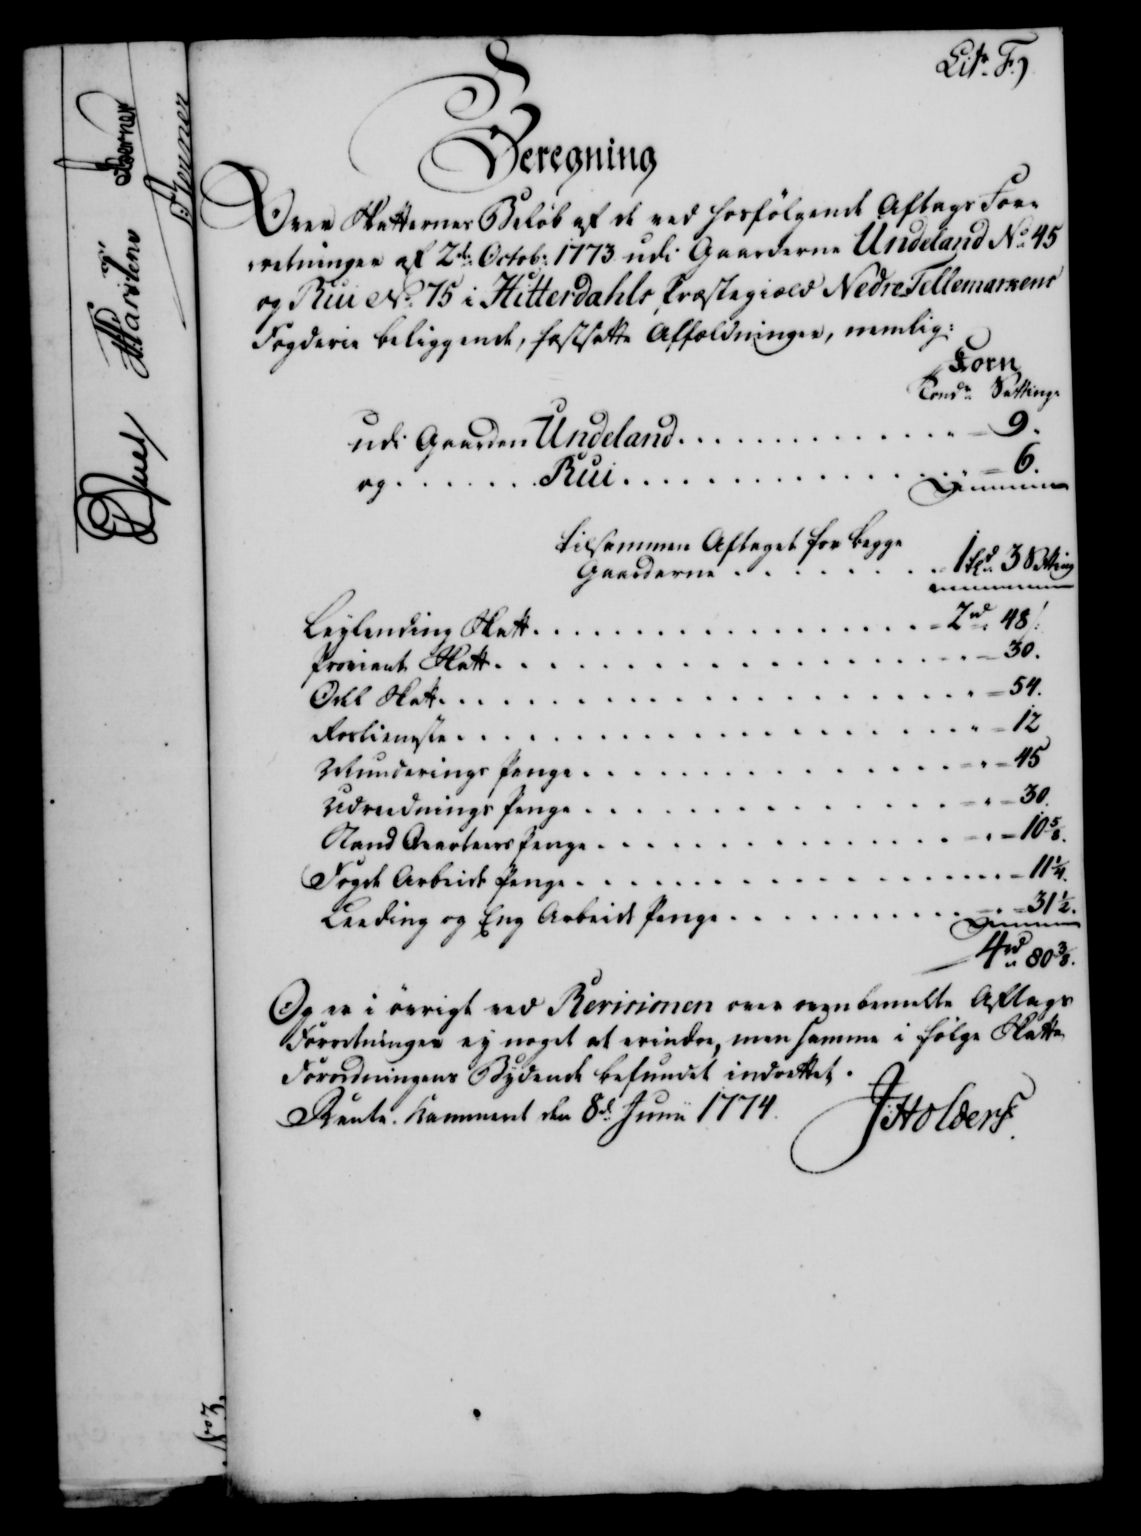 Litr. F.)
Beregning
Over Skatternes Beløb af de ved hosfølgende Aftags For-
retninger af 2de Octobr. 1773 udi Gaarderne Undeland No. 45
og Rui No. 75 i Hitterdahls Præstegield Nedre Tellemarkens
Fogderie beliggende, fastsatte Affældninger, nemlig:
Korn
Tønder Setting.
udi Gaarden Undeland - 9.
og Rui - 6.
tilsammen Aftaget for begge
Gaarderne 1 td. 3 Setting
Leylending Skatt - 2 rd. 48 s.
Proviant Skatt - 30.
Odel Skatt - 54.
Rostieneste - 12
Munderings Penge - 45
Udrednings Penge - 30.
Stand Qvarteers Penge - 10 5/8.
Fogde Arbeids Penge - 11 1/4.
Leeding og Eng Arbeids Penge - 31 1/2.
4 rd. 80 3/8.
Og er i øvrigt ved Revisionen over ovenbemelte Aftags
Forretninger ey noget at erindre, men samme i følge Skatte
Forordningens Bydende befundet indrettet.
Rente Kammeret den 8de Junii 1774.
J Holdersz.
Marstens
Ferner
No 3.